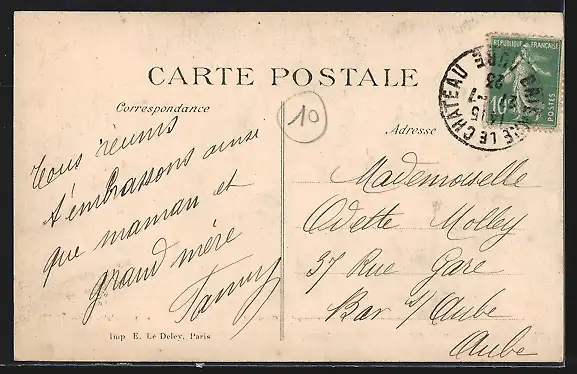 CARTE POSTALE
Correspondance
10
Adresse
RÉPUBLIQUE FRANÇAISE
10
POSTES
LE CHATEAU
EURE
14 15
21 -1
23
Tous réunis
t'embrassons ainsi
que maman et
grand mère
Fanny
Mademoiselle
Odette Molley
37 Rue Gare
Bar s/ Aube
Aube
Imp E. Le Deley, Paris